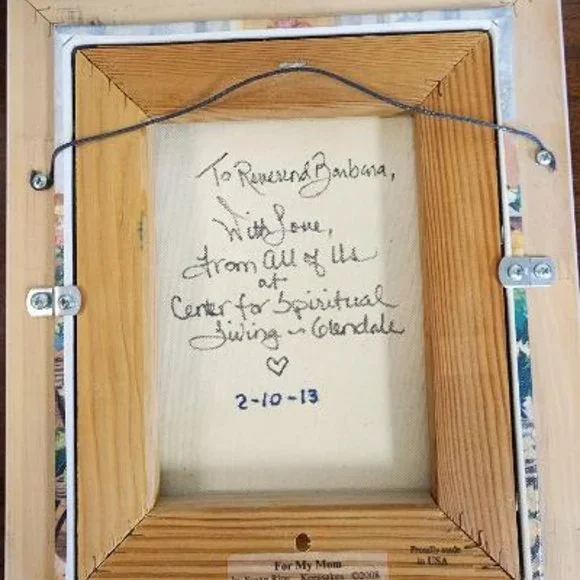 To Reverend Barbara,
With Love,
From All of Us
at
Center for Spiritual
Living ~ Glendale
♡
2-10-13
For My Mom
Keepsakes ©2008
Proudly made
in USA